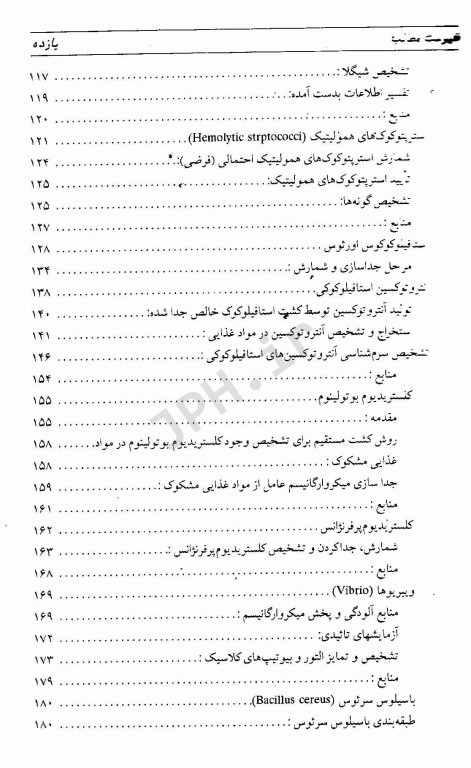 فهرست مطالب یازده
تشخیص شیگلا: ۱۱۷
تفسیر اطلاعات بدست آمده: ۱۱۹
منابع: ۱۲۰
ستریتوکوک‌های همولیتیک (Hemolytic strptococci) ۱۲۱
شمارش استرپتوکوک‌های همولیتیک احتمالی (فرضی): ۱۲۴
تأیید استرپتوکوک‌های همولیتیک: ۱۲۵
تشخیص گونه‌ها: ۱۲۵
منابع: ۱۲۷
ستافیلوکوکوس اورئوس ۱۲۸
مرحل جداسازی و شمارش: ۱۳۴
نتروتوکسین استافیلوکوکی ۱۳۸
تولید آنتروتوکسین توسط کشت استافیلوکوک خالص جدا شده: ۱۴۰
ستخراج و تشخیص آنتروتوکسین در مواد غذایی: ۱۴۱
تشخیص سرم‌شناسی آنتروتوکسین‌های استافیلوکوکی: ۱۴۶
منابع: ۱۵۴
کلستریدیوم بوتولینوم ۱۵۵
مقدمه: ۱۵۵
روش کشت مستقیم برای تشخیص وجود کلستریدیوم بوتولینوم در مواد ۱۵۸
غذایی مشکوک: ۱۵۸
جدا سازی میکروارگانیسم عامل از مواد غذایی مشکوک: ۱۵۹
منابع: ۱۶۱
کلستریدیوم پرفرنژانس ۱۶۲
شمارش، جدا کردن و تشخیص کلستریدیوم پرفرنژانس: ۱۶۳
منابع: ۱۶۸
ویبریوها (Vibrio) ۱۶۹
منابع آلودگی و پخش میکروارگانیسم: ۱۶۹
آزمایشهای تائیدی: ۱۷۲
تشخیص و تمایز التور و بیوتیپ‌های کلاسیک: ۱۷۳
منابع: ۱۷۹
باسیلوس سرئوس (Bacillus cereus) ۱۸۰
طبقه‌بندی باسیلوس سرئوس: ۱۸۰
JPH.ir